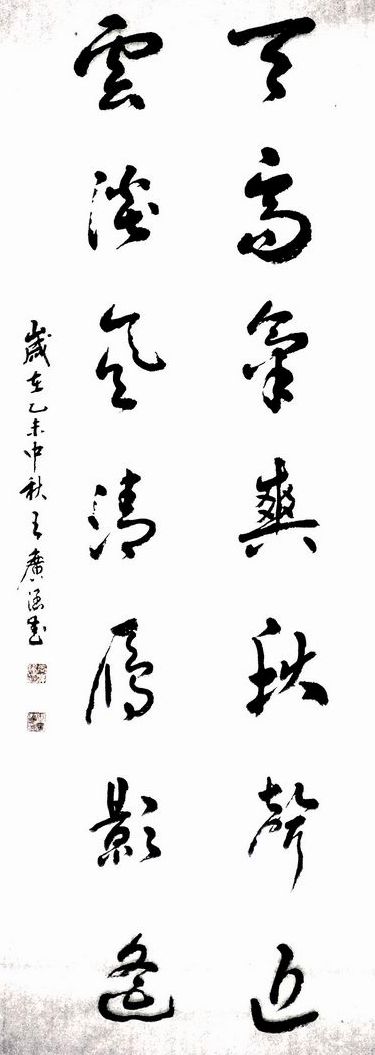 天高氣爽秋聲近
雲淡風清雁影遙
歲在乙未中秋王廣